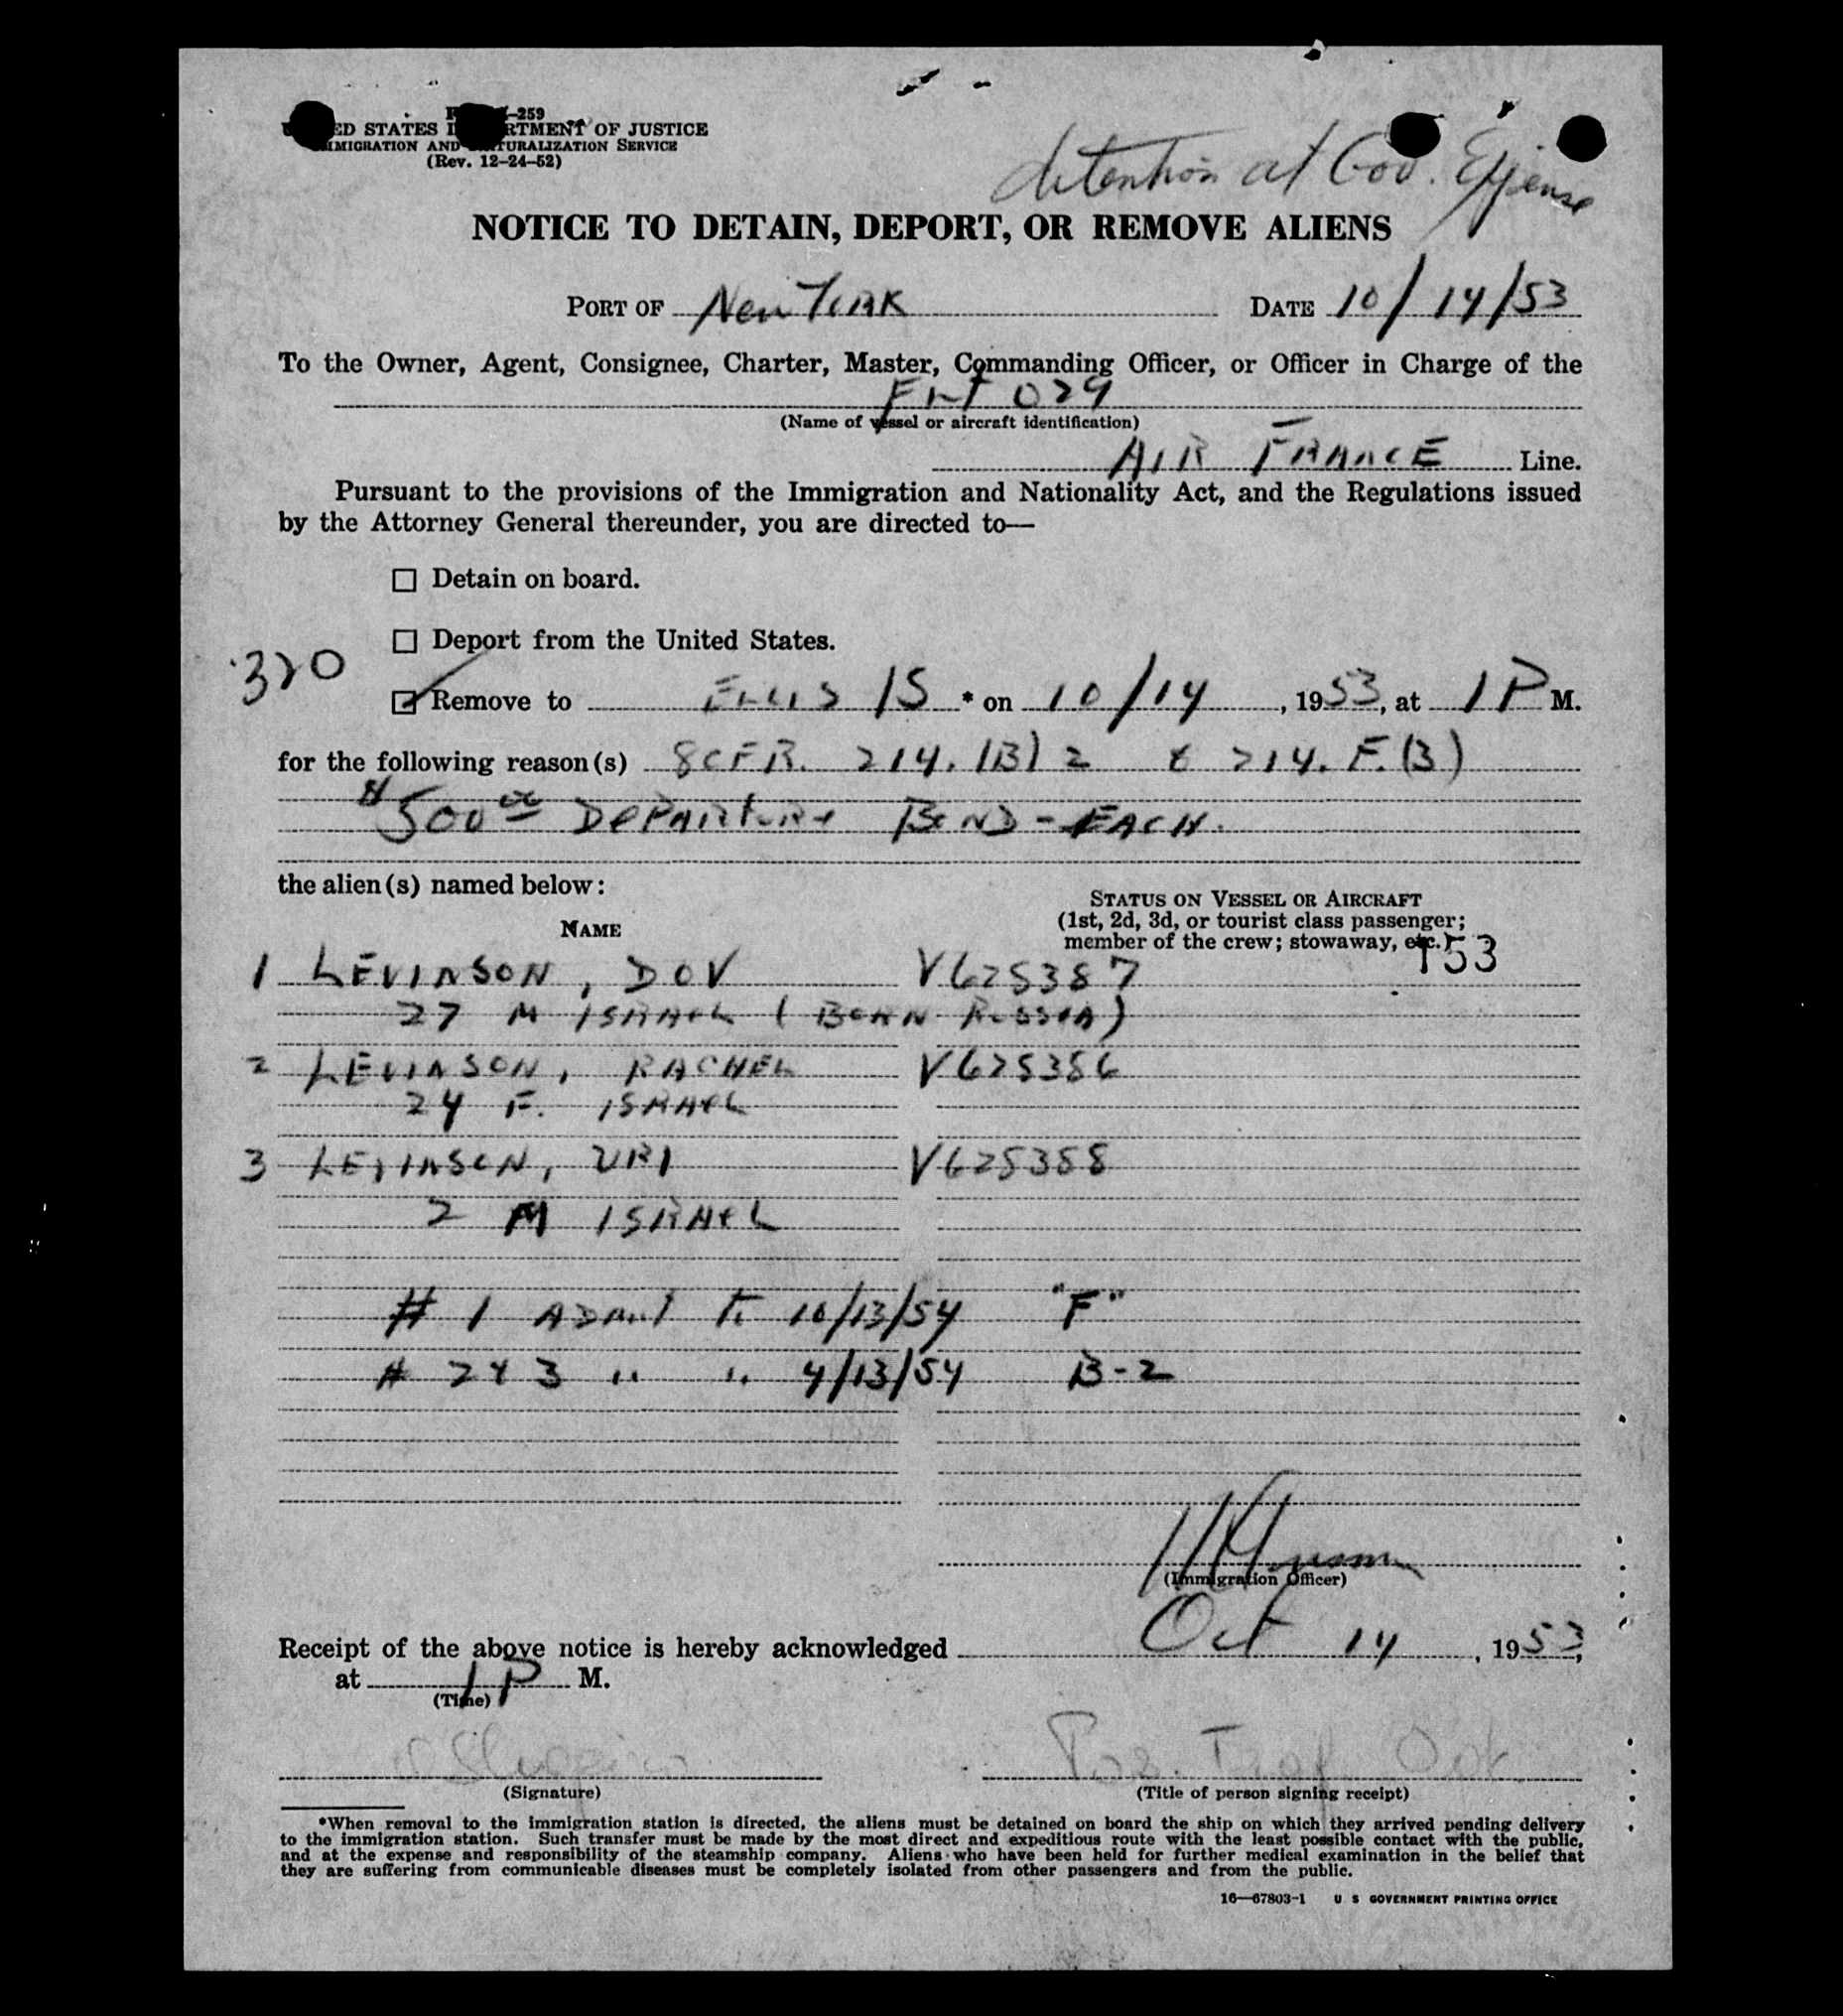 -259
ED STATES RTMENT OF JUSTICE
MIGRATION AND TURALIZATION SERVICE
(Rev. 12-24-52)
detention at Gov. Expense
NOTICE TO DETAIN, DEPORT, OR REMOVE ALIENS
PORT OF New York DATE 10/14/53
To the Owner, Agent, Consignee, Charter, Master, Commanding Officer, or Officer in Charge of the
FLT 029
(Name of vessel or aircraft identification)
AIR FRANCE Line.
Pursuant to the provisions of the Immigration and Nationality Act, and the Regulations issued
by the Attorney General thereunder, you are directed to—
☐ Detain on board.
☐ Deport from the United States.
320
☑ Remove to ELLIS IS * on 10/14, 1953, at 1 P M.
for the following reason(s) 8CFR. 214.(B)2 & 214.F.(3)
$500.00 DEPARTURE BOND - EACH.
the alien(s) named below:
STATUS ON VESSEL OR AIRCRAFT
(1st, 2d, 3d, or tourist class passenger;
NAME
member of the crew; stowaway, etc.)
153
1 LEVINSON, DOV V625387
27 M ISRAEL (BORN RUSSIA)
2 LEVINSON, RACHEL V625386
24 F. ISRAEL
3 LEVINSON, URI V625388
2 M ISRAEL
# 1 ADMIT TO 10/13/54 "F"
# 2 & 3 " " 4/13/54 B-2
(Immigration Officer)
Receipt of the above notice is hereby acknowledged Oct 14, 1953,
at 1 P M.
(Time)
(Signature)
(Title of person signing receipt)
*When removal to the immigration station is directed, the aliens must be detained on board the ship on which they arrived pending delivery
to the immigration station. Such transfer must be made by the most direct and expeditious route with the least possible contact with the public,
and at the expense and responsibility of the steamship company. Aliens who have been held for further medical examination in the belief that
they are suffering from communicable diseases must be completely isolated from other passengers and from the public.
16—67803-1 U S GOVERNMENT PRINTING OFFICE